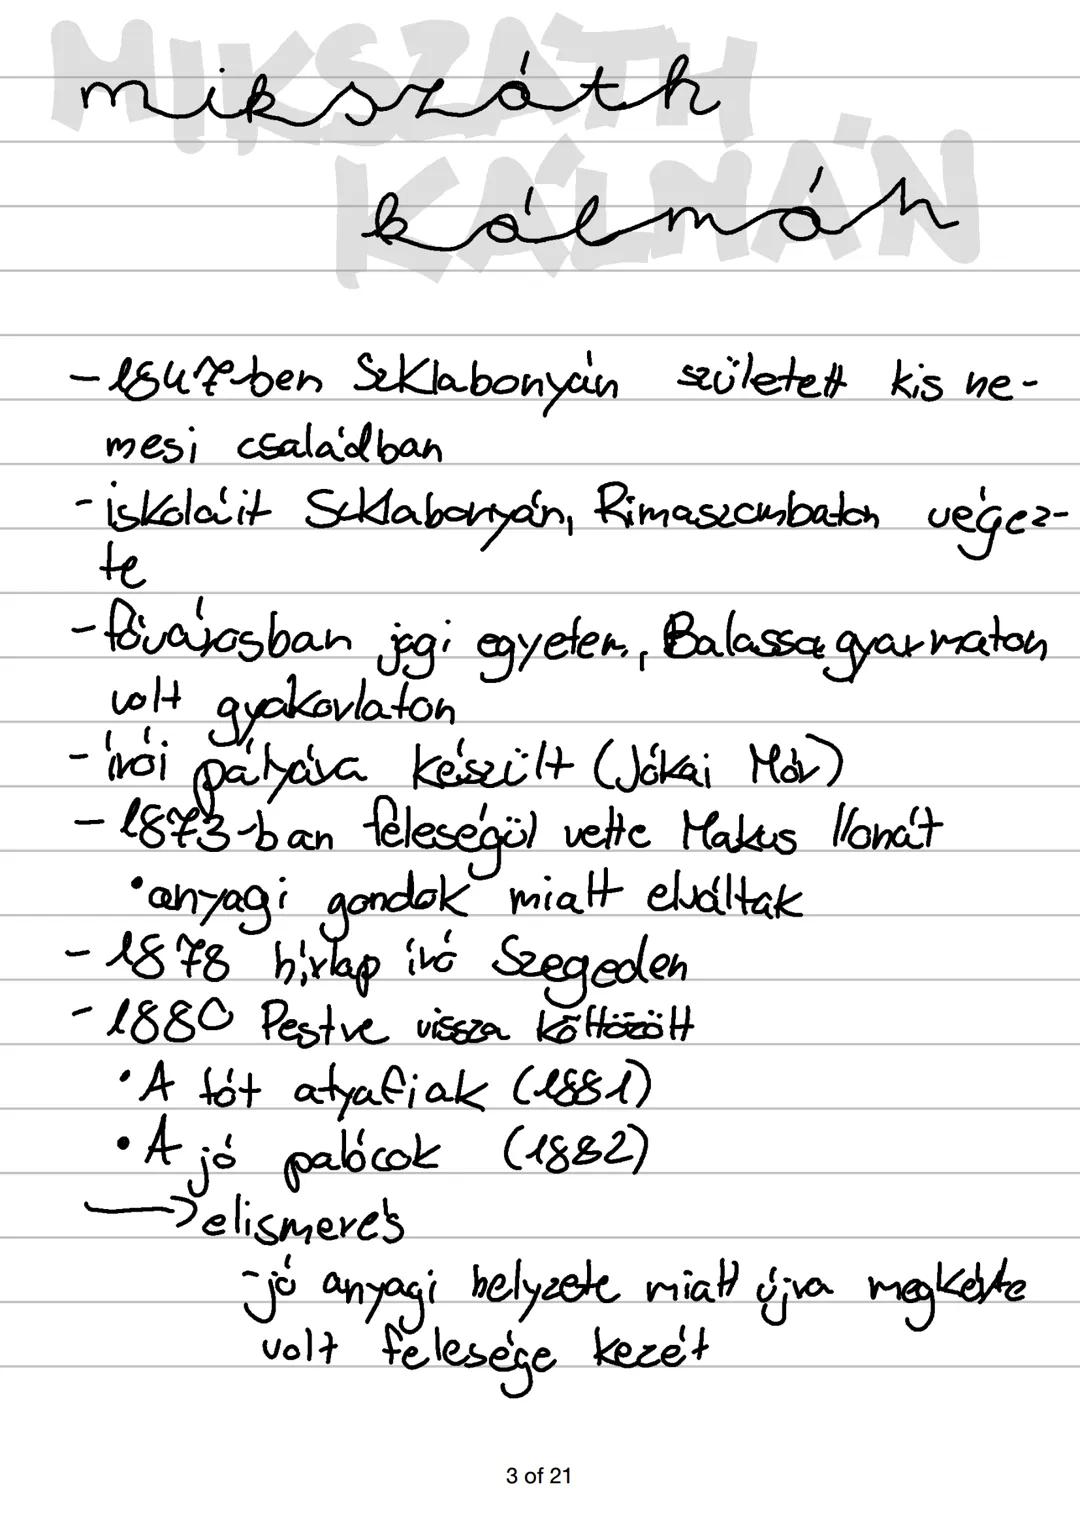 MIKSZÁTH
KÁLMÁN
mikszáth
kálmán
- 1847-ben Szklabonyán született kis ne-
mesi családban
- iskoláit Szklabonyán, Rimaszombaton végez-
te
- fővárosban jogi egyetem, Balassagyarmaton
volt gyakorlaton
- írói pályára készült (Jókai Mór)
- 1873-ban feleségül vette Makus Ilonát
• anyagi gondok miatt elváltak
- 1878 hírlap író Szegeden
- 1880 Pestre vissza költözött
• A tót atyafiak (1881)
• A jó palócok (1882)
→ elismerés
- jó anyagi helyzete miatt újra megkérte
volt felesége kezét
3 of 21